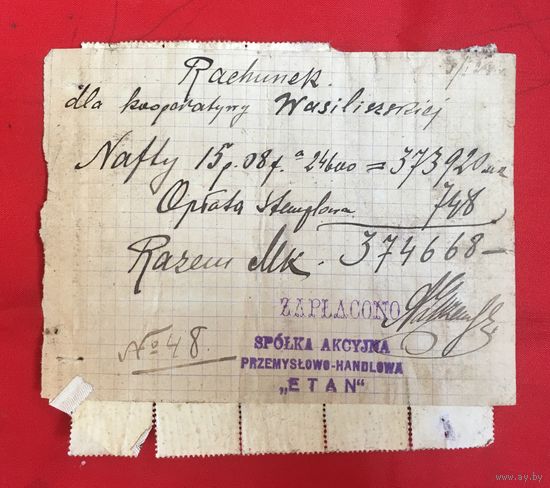 Rachunek.
dla kooperatywy Wasiliszskiej
Nafty 15p. 08f. a 24600 = 373920
Opłata stemplowa 748
Razem Mk. 374668 —
ZAPŁACONO
No 48.
SPÓŁKA AKCYJNA
PRZEMYSŁOWO-HANDLOWA
„ETAN“
www.ay.by